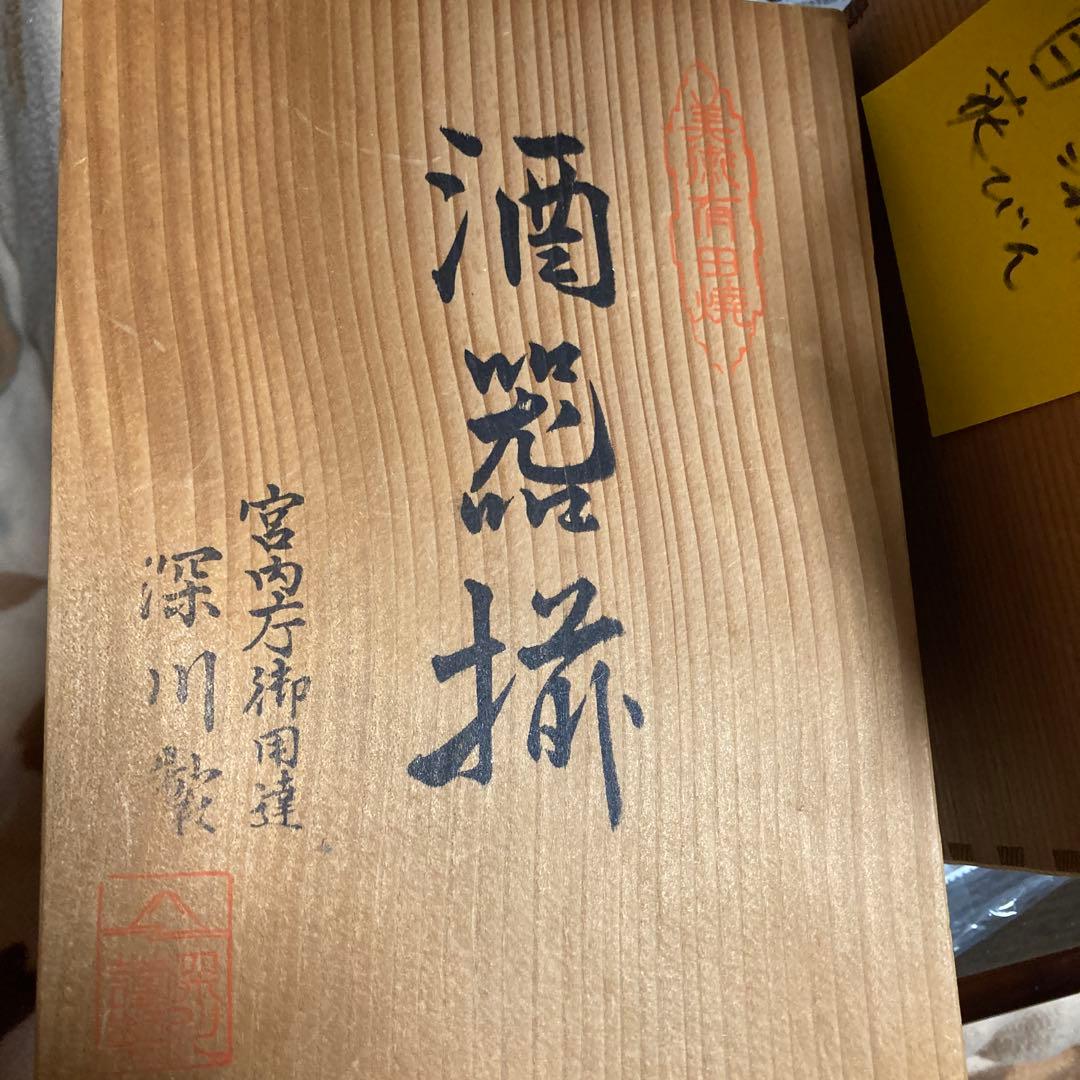 花びん
美術有田焼
酒器揃
宮内庁御用達
深川製